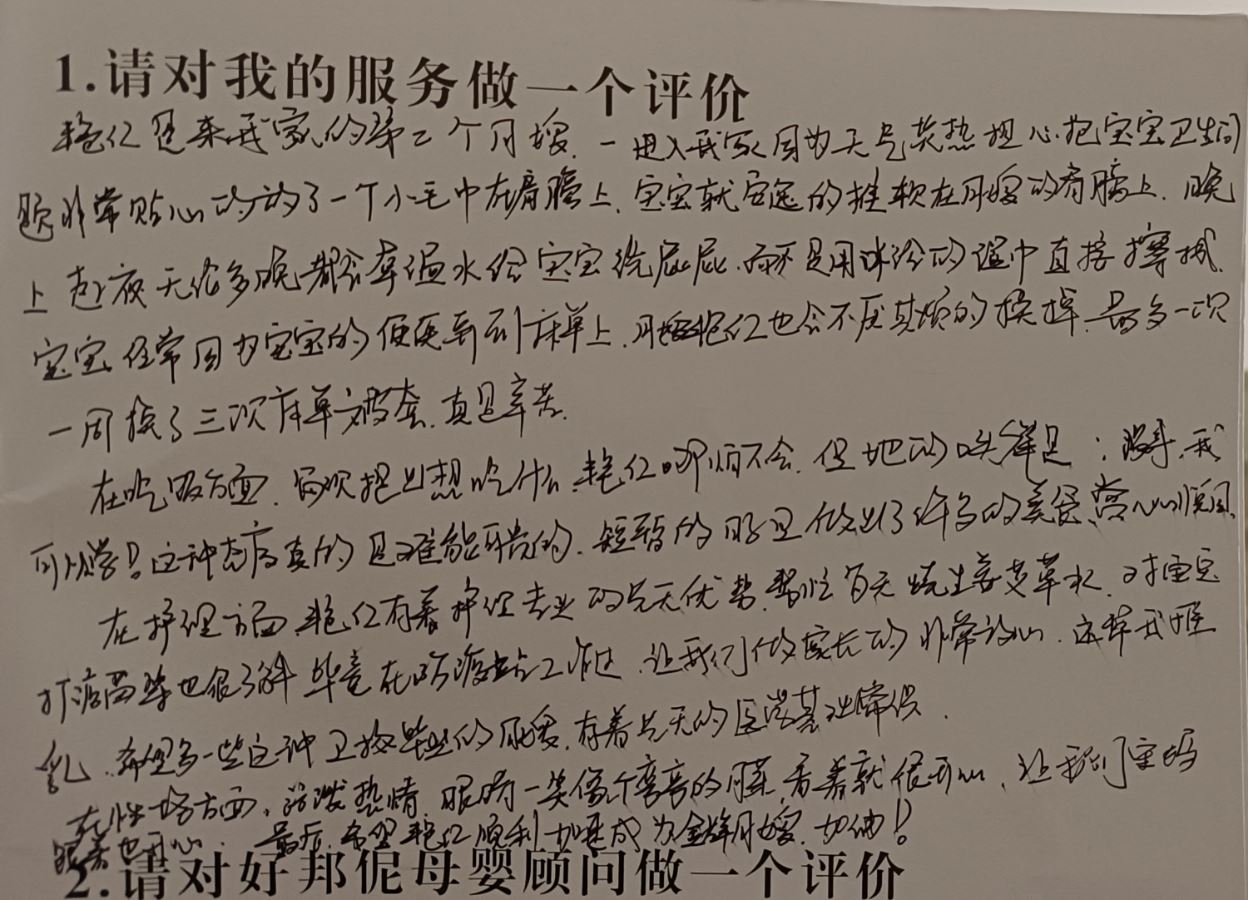 1.请对我的服务做一个评价
艳红是来我家的第二个月嫂.一进入我家因为天气炎热担心把宝宝卫生问
题非常贴心的的了一个小毛巾在肩膀上.宝宝就安逸的挂软在月嫂的肩膀上.晚
上起夜无论多晚都会拿温水给宝宝洗屁屁.而不是用冰冷的湿巾直接擦拭.
宝宝经常因为宝宝的便便弄到床单上.月嫂艳红也会不厌其烦的换掉.最多一次
一周换了三次床单被套.真是辛苦.
在吃饭方面.每次提出想吃什么.艳红哪怕不会.但她的口头禅是:没事.我
可以学!这种态度真的是难能可贵的.短暂的服务做出了许多的美食、
在护理方面.艳红有着护理专业的先天优势.帮忙百天烧生姜艾草水.对宝宝
打疫苗等也很了解毕竟在防疫站工作过.让我们做家长的非常放心.
乳.希望多一些这种卫校毕业的月嫂.有着先天的医学基础
在性格方面.活泼热情.眼睛一笑像个弯弯的月牙.看着就很开心.让我们宝妈
跟着也开心.最后.希望艳红顺利加速成为金牌月嫂.加油!
2.请对好邦伲母婴顾问做一个评价